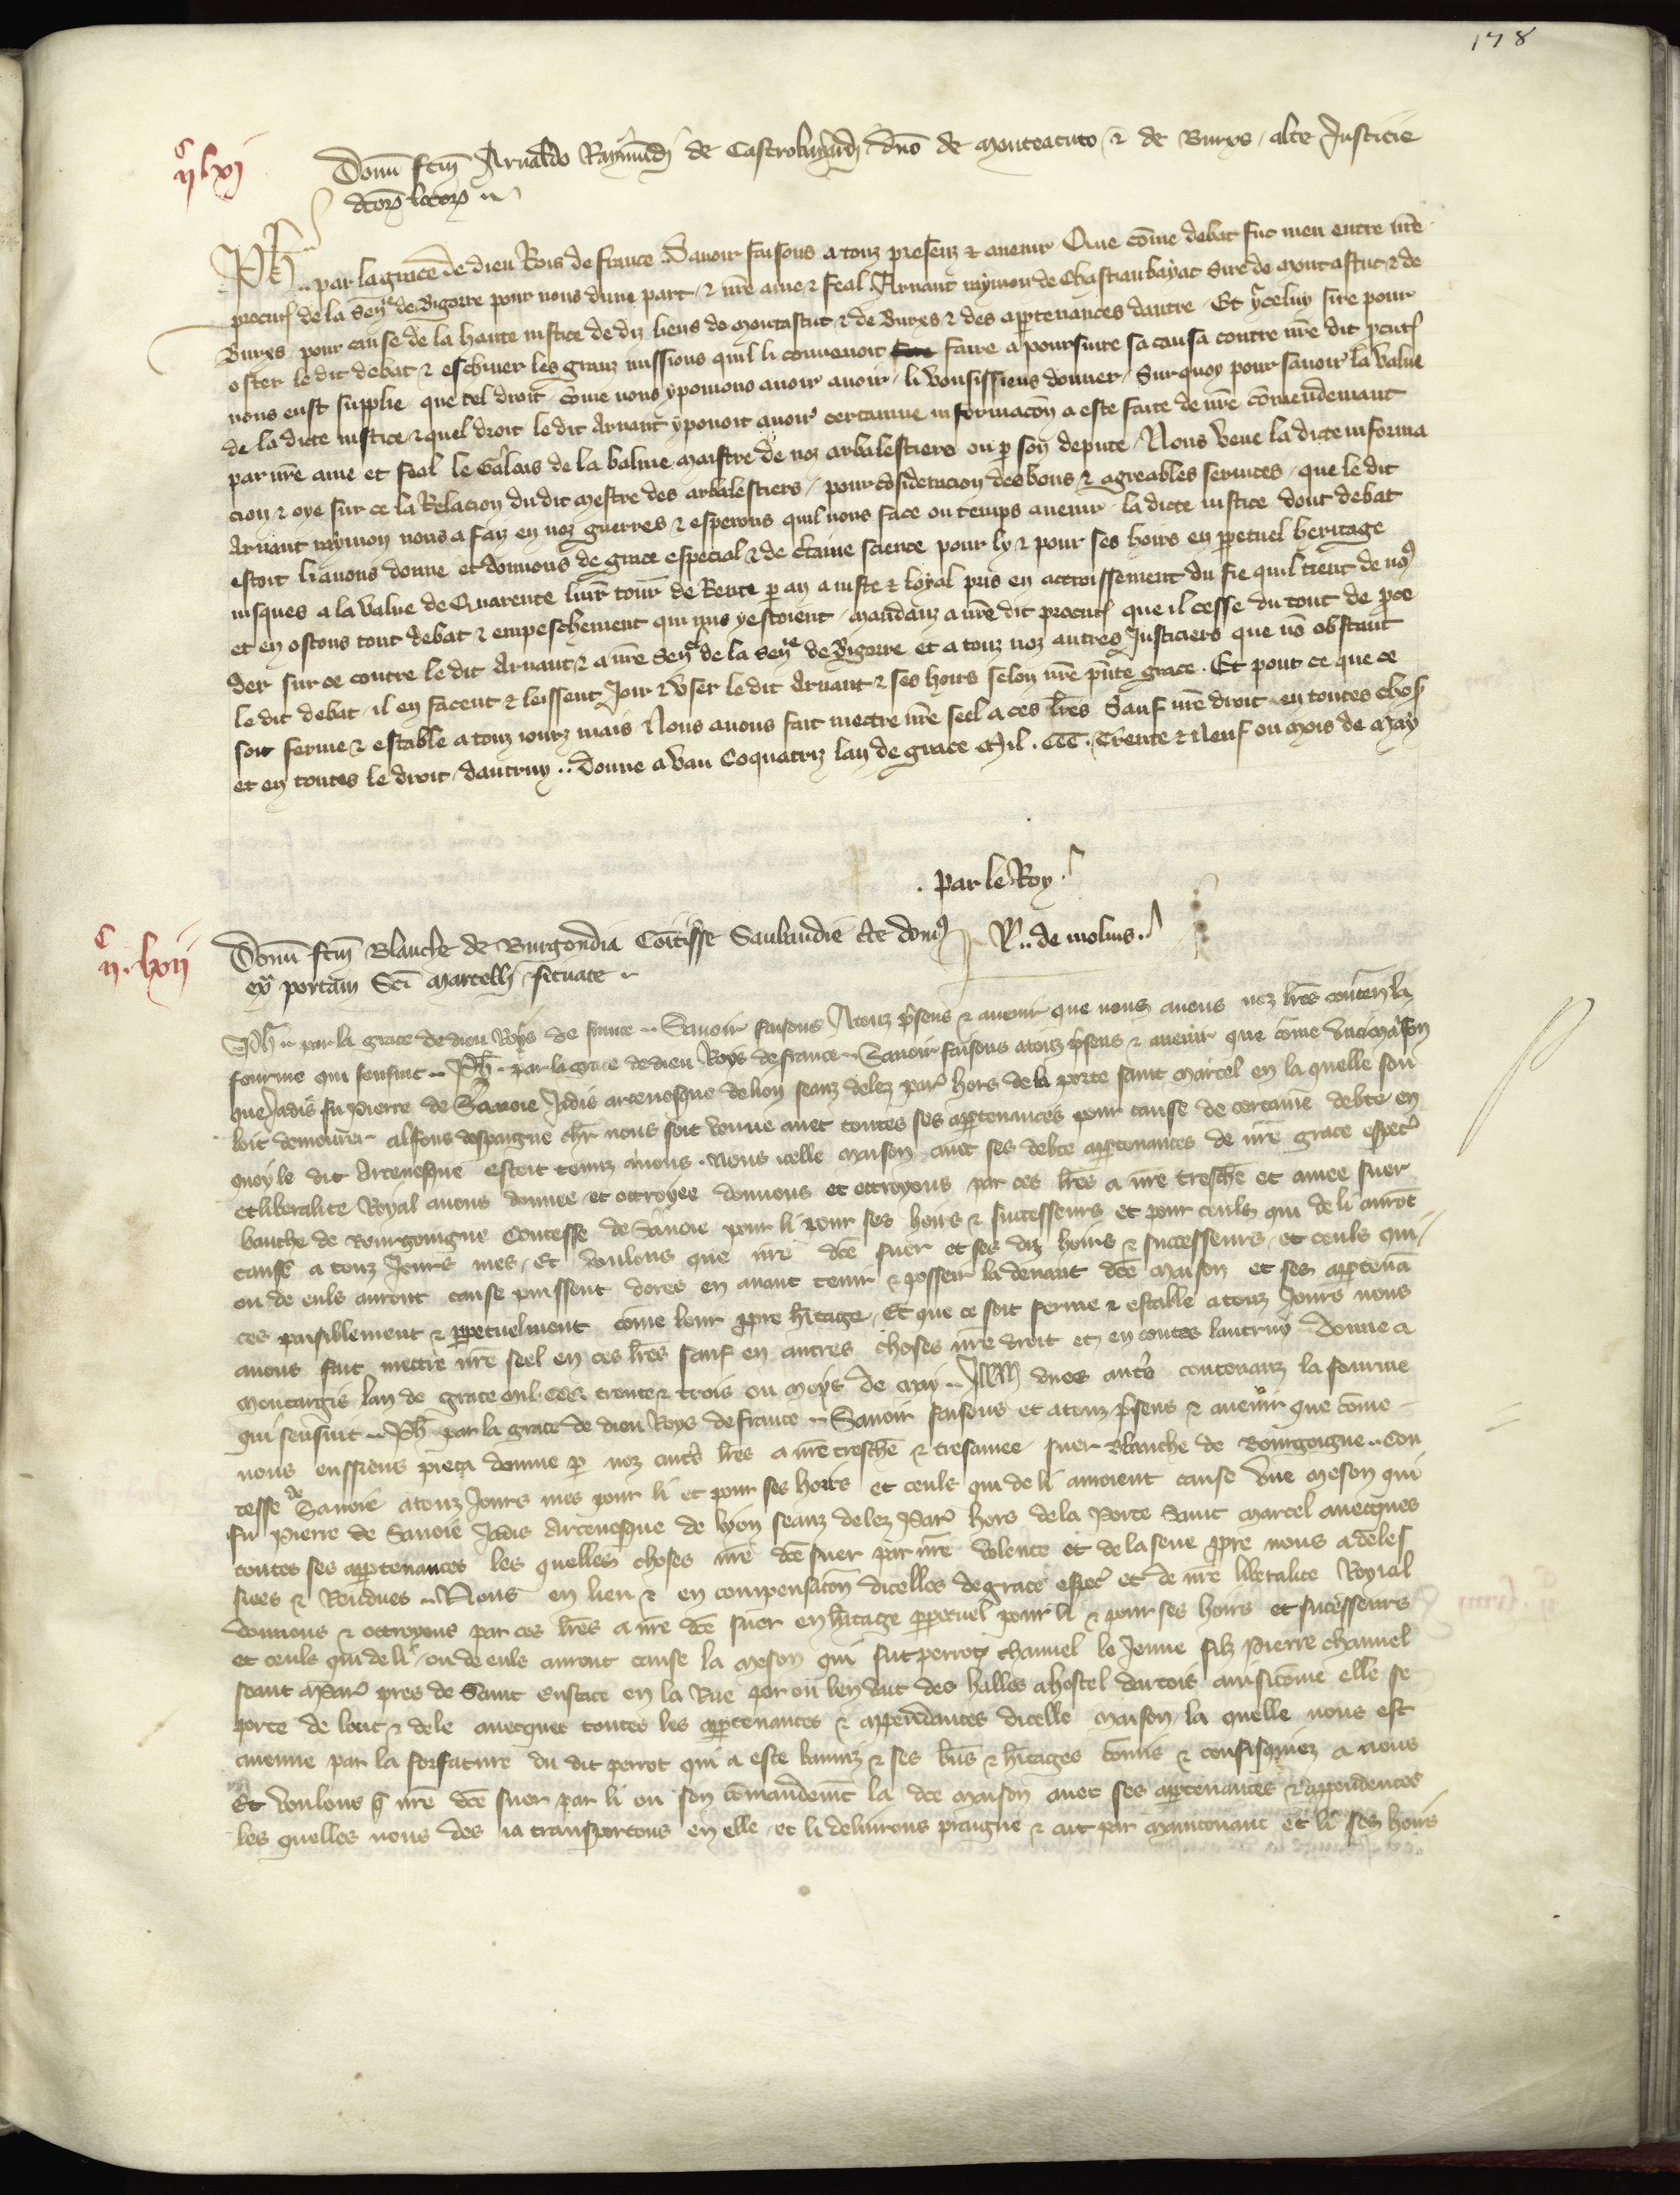 178
IIc lxj
Donu fcm Arnaldo Raymundi de Castrobayardi dno de Monteacuto & de Burxs alte Justicie
dcorum locorum
Ph par la grace de dieu Rois de france Savoir faisons a touz presenz & avenir Que come debat fut meu entre nre
procureur de la Senee de Bigorre pour nous dune part & nre ame & feal Arnaut raymon de Chastiaubayat Sire de montastut & de
Burxs pour cause de la haute justice de diz lieus de montastut & de Burxs & des appartenances dautre Et yceluy sire pour
oster le dit debat & eschiver les granz missions quil li convenoit faire a poursuire sa causa contre nre dit pcureur
nous eust supplie que tel droit come nous y pouiens avoir avoir li vousissiens donner Sur quoy pour savoir la value
de la dicte justice & quel droit le dit Arnaut y pouoit avoir certainne informacon a este faite de nre comendemant
par nre ame et feal le Galois de la balme maistre de noz arbalestiers ou p son depute Nous veue la dicte informa
cion & oye sur ce la Relacion du dit mestre des arbalestiers pour consideracion des bons & agreables services que le dit
Arnaut raymon nous a faiz en noz guerres & esperons quil nous face ou temps avenir la dicte justice dont debat
estoit li avons donne et donnons de grace especial & de certaine science pour ly & pour ses hoirs en perpetuel heritage
jusques a la value de Quarente livr tour de Rente p an a juste & loyal pris en accroissement du fie quil tient de nous
et en ostons tout debat & empeschement qui mis y estoient mandanz a nre dit procureur que il cesse du tout de proce
der sur ce contre le dit Arnaut & a nre Senel de la Senee de Bigorre et a touz noz autres Justiciers que no obstant
le dit debat il en facent & leissent Joir & user le dit Arnaut & ses hoirs selon nre pnte grace Et pour ce que ce
soit ferme & estable a touz jourz mais Nous avons fait mectre nre seel a ces lres Sauf nre droit en toutes choses
et en toutes le droit dautruy Donne a Vau Coquatrix lan de grace Mil CCC Trente & Neuf ou mois de May
par le Roy
R de molins
IIc lxij
Donu fcm Blanche de Burgondia Comitisse Sabaudie de domo
ex portam Sci Marcelli situate
Ph par la grace de dieu Roys de france Savoir faisons A touz psens & avenir que nous avons noz lres conten la
fourme qui sensuit Ph par la grace de dieu Roys de france Savoir faisons a touz psens & avenir que come une maison
que Jadis fu pierre de Savoie Jadis arcevesque de lion seanz delez par hors de la porte saint marcel en la quelle sou
loit demourer alfons despaigne chr nous soit venue avec toutes ses appartenances pour cause de certaine debte en
quoy le dit Arcevesque estoit tenuz a nous Nous icelle maison avec ses debte appartenances de nre grace especial
et liberalite Royal avons donnee et ottroyee donnons et ottroyons par ces lres a nre treschre et amee suer
bauche de Bourgoingne Contesse de Savoie pour li pour ses hoirs & successeurs et pour ceuls qui de li auront
cause a touz Jours mes Et voulons que nre dce suer et ses diz hoirs & successeurs et ceuls qui
ou de euls auront cause puissent dores en avant tenir & posseir la devant dce maison et ses appartenan
ces paisiblement & perpetuelment come leur propre heritage Et que ce soit ferme & estable a touz Jours nous
avons fait mettre nre seel en ces lres sauf en autres choses nre droit et en toutes lautruy Donne a
montargis lan de grace mil CCC trente & trois ou moys de may Item unes autres contenanz la fourme
qui sensuit Ph par la grace de dieu Roys de france Savoir faisons et a touz psens & avenir que come
nous eussiens pieca donne p noz autres lres a nre treschre & tresamee suer Blanche de Bourgoigne Con
tesse de Savoie a touz Jours mes pour li et pour ses hoirs et ceuls qui de li auroient cause une meson qui
fu pierre de Savoie Jadis Arcevesque de lyon seanz delez Par hors de la Porte Saint Marcel avecques
toutes ses appartenances les quelles choses nre dce suer par nre volente et de la seue propre nous a deles
siees & Rendues Nous en lieu & en compensacon dicelles de grace especial et de nre liberalite Royial
donnons & ottroyons par ces lres a nre dce suer en heritage perpetuel pour li & pour ses hoirs et successeurs
et ceuls qui de li ou de euls auront cause la meson qui fut perrot chauvel le Jeune filz pierre chauvel
seant a Par pres de Saint eustace en la Rue par ou len vait des halles a hostel dartois ainsi come elle se
porte de lonc & de le avecques toutes les appartenances & appendances dicelle maison la quelle nous est
avenue par la forfature du dit perrot qui a este banniz & ses biens & heritages comis & confisquiez a nous
Et voulons que nre dce suer par li ou son comandemt la dce maison avec ses appartenances & appendences
les quelles nous des ia transportons en elle et li delivrons praigne & ait par maintenant et li ses hoirs